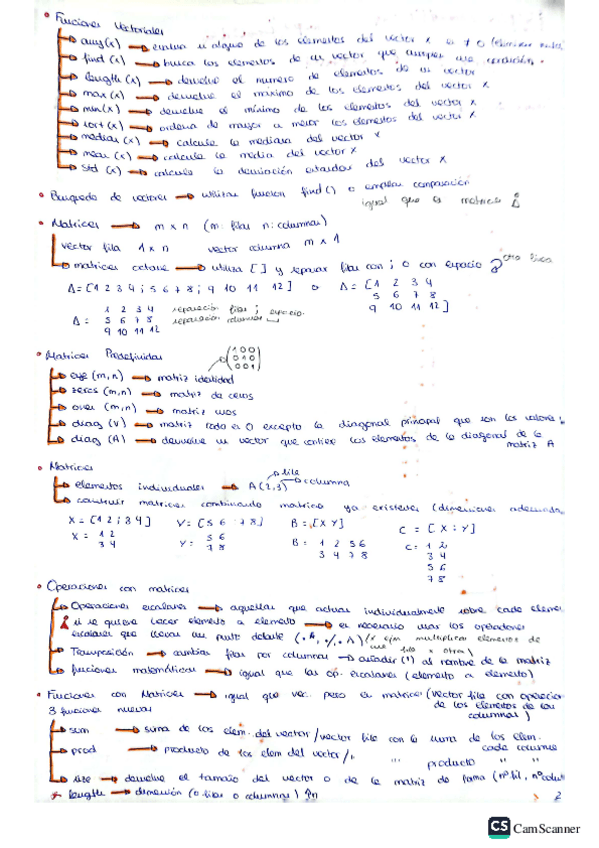 • Funciones Vectoriales
any(x) → evalua si alguno de los elementos del vector x es ≠ 0
find (x) → busca los elementos de un vector que cumplen una condición
length (x) → devuelve el numero de elementos de un vector
max (x) → devuelve el máximo de los elementos del vector x
min(x) → devuelve el mínimo de los elementos del vector x
sort(x) → ordena de mayor a menor los elementos del vector x
median (x) → calcula la mediana del vector x
mean (x) → calcula la media del vector x
std (x) → calcula la desviación estandar del vector x
• Busqueda de vectores → utilizar funcion find() o emplear comparación
igual que la matrices
• Matrices → m x n (m: filas n: columnas)
vector fila 1 x n vector columna m x 1
matrices octave → utiliza [ ] y separar filas con ; o con espacio otra linea
A = [1 2 3 4 ; 5 6 7 8 ; 9 10 11 12] o A = [1 2 3 4
5 6 7 8
9 10 11 12]
A = 1 2 3 4
5 6 7 8
9 10 11 12
separacion filas ; espacio
separacion columnas
• Matrices Predefinidas
(1 0 0
0 1 0
0 0 1)
eye (m,n) → matriz identidad
zeros (m,n) → matriz de ceros
ones (m,n) → matriz unos
diag (V) → matriz toda es 0 excepto la diagonal principal que son los valores
diag (A) → devuelve un vector que contiene los elementos de la diagonal de la
matriz A
• Matrices
elementos individuales → A(2,3) fila columna
construir matrices combinando matrices ya existentes (dimensiones adecuadas
X = [1 2 ; 3 4] Y = [5 6 ; 7 8] B = [X Y] C = [X ; Y]
X = 1 2
3 4
Y = 5 6
7 8
B = 1 2 5 6
3 4 7 8
C = 1 2
3 4
5 6
7 8
• Operaciones con matrices
Operaciones escalares → aquellas que actuan individualmente sobre cada elemen
si se quiere hacer elemento a elemento → es necesario usar los operadores
escalares que llevan un punto delante
Transposición → cambiar filas por columnas → añadir (') al nombre de la matriz
funciones matemáticas → igual que las op. escalares (elemento a elemento)
• Funciones con Matrices → igual que vec. pero en matrices (vector fila con operacion
3 funciones nuevas
de los elementos de las
columnas)
sum → suma de los elem. del vector/vector fila con la suma de los elem.
cada columna
prod → producto de los elem del vector/ " producto " "
size → devuelve el tamaño del vector o de la matriz de forma (nº fil, nº colum
* length → dimensión (o filas o columnas)
2
CS CamScanner